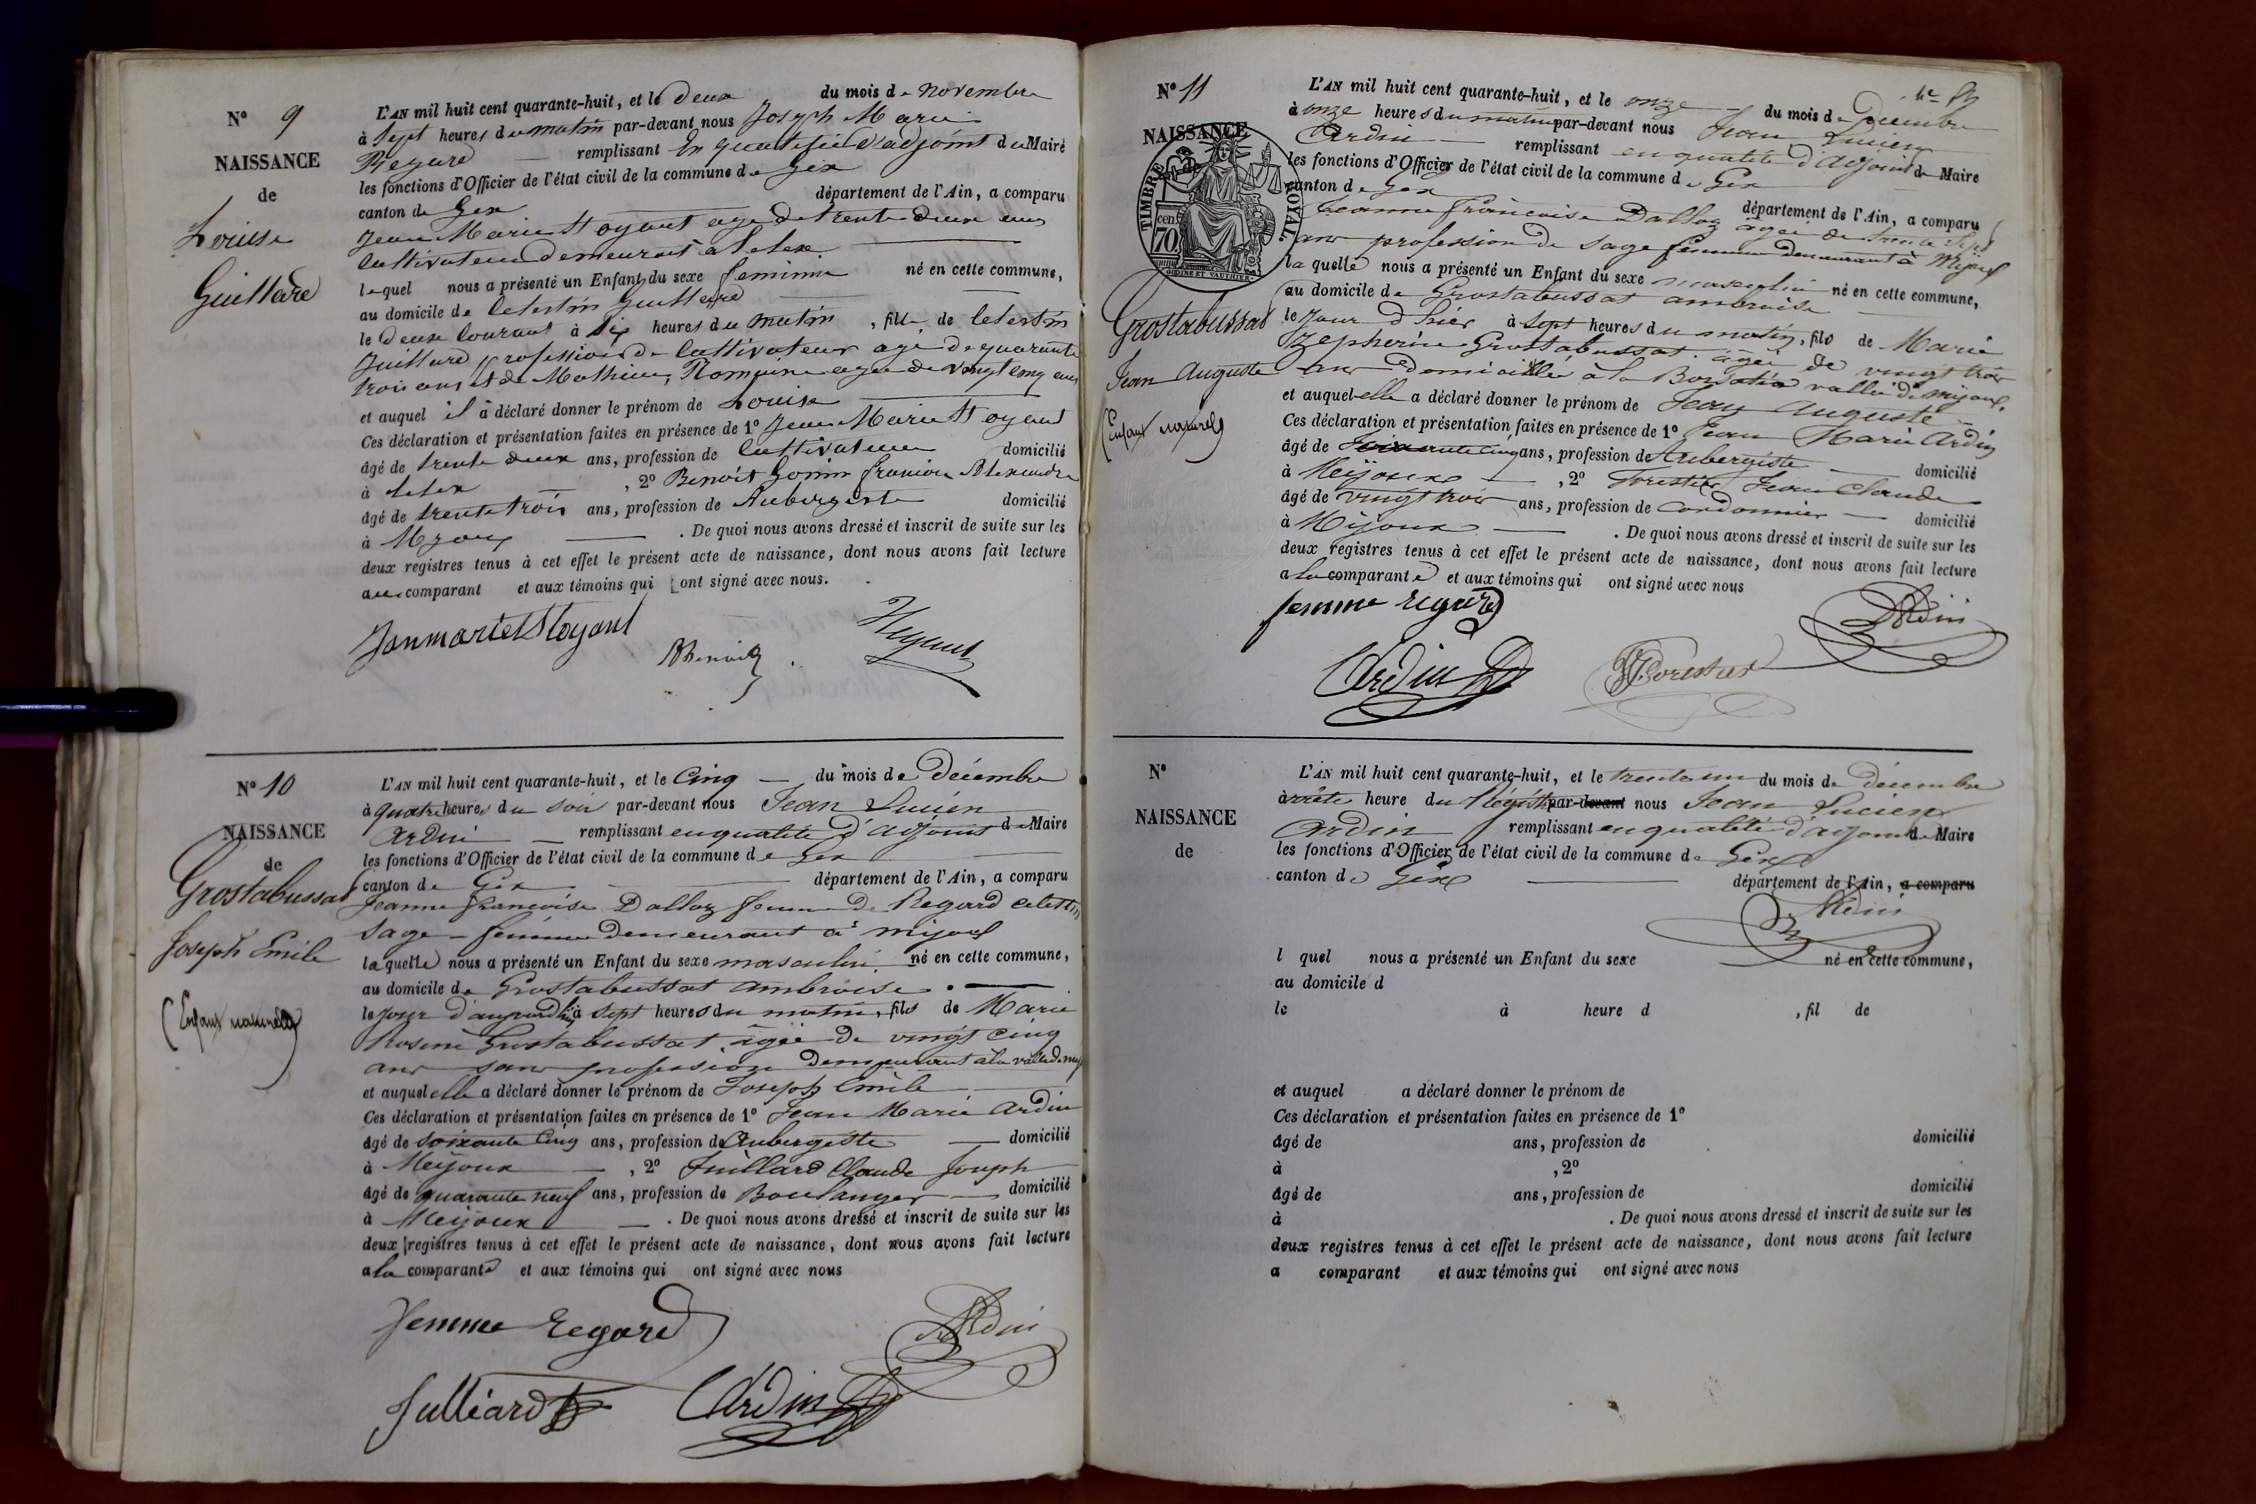 N° 9
NAISSANCE
de
Louise
Guillard
L'AN mil huit cent quarante-huit, et le deux du mois de novembre
à sept heures du matin par-devant nous Joseph Marie
Regard remplissant En qualité d'adjoint du Maire
les fonctions d'Officier de l'état civil de la commune de Gex
canton de Gex département de l'Ain, a comparu
Jean Marie agé de trente deux ans
Cultivateur demeurant à Lelex
lequel nous a présenté un Enfant du sexe feminin né en cette commune,
au domicile de Celestin
le deux Courant à six heures du matin, fille de Celestin
profession de Cultivateur agé de quarante
trois ans et de Mathieu, Romaine agée de vingt cinq ans
et auquel il a déclaré donner le prénom de Louise
Ces déclaration et présentation faites en présence de 1° Jean Marie
âgé de trente deux ans, profession de Cultivateur domicilié
à Lelex, 2° Benoit Gonin François Alexandre
âgé de trente trois ans, profession de Aubergiste domicilié
à Mijoux. De quoi nous avons dressé et inscrit de suite sur les
deux registres tenus à cet effet le présent acte de naissance, dont nous avons fait lecture
au comparant et aux témoins qui ont signé avec nous.
N° 10
NAISSANCE
de
Grostabussat
Joseph Emile
(Enfant naturel)
L'AN mil huit cent quarante-huit, et le Cinq du mois de Décembre
à quatre heures du soir par-devant nous Jean Lucien
Ardin remplissant en qualité d'adjoint de Maire
les fonctions d'Officier de l'état civil de la commune de Gex
canton de Gex département de l'Ain, a comparu
Jeanne françoise Dalloz femme de Regard celestin
sage-femme demeurant à mijoux
laquelle nous a présenté un Enfant du sexe masculin né en cette commune,
au domicile de Grostabussat ambroise
le jour d'aujourd'hui à sept heures du matin, fils de Marie
Rosine Grostabussat âgée de vingt cinq
ans sans profession demeurant à la vallée de
et auquel elle a déclaré donner le prénom de Joseph Emile
Ces déclaration et présentation faites en présence de 1° Jean Marie Ardin
âgé de soixante cinq ans, profession de Aubergiste domicilié
à Meijoux, 2° Juillard Claude Joseph
âgé de quarante neuf ans, profession de Boulanger domicilié
à Meijoux. De quoi nous avons dressé et inscrit de suite sur les
deux registres tenus à cet effet le présent acte de naissance, dont nous avons fait lecture
a la comparante et aux témoins qui ont signé avec nous
femme regard
Ardin
Julliard
Ardin
N° 11
NAISSANCE
TIMBRE ROYAL
cen. 70
Grostabussat
Jean Auguste
(Enfant naturel)
L'AN mil huit cent quarante-huit, et le onze du mois de Décembre
à onze heures du matin par-devant nous Jean Lucien
Ardin remplissant en qualité d'adjoint de Maire
les fonctions d'Officier de l'état civil de la commune de Gex
canton de Gex département de l'Ain, a comparu
Jeanne françoise Dalloz agée de trente sept
ans profession de sage femme demeurant à Mijoux
laquelle nous a présenté un Enfant du sexe masculin né en cette commune,
au domicile de Grostabussat ambroise
le jour d'hier à sept heures du matin, fils de Marie
Zepherine Grostabussat âgée de vingt trois
ans domiciliée à la vallée de mijoux,
et auquel elle a déclaré donner le prénom de Jean Auguste
Ces déclaration et présentation faites en présence de 1° Jean Marie Ardin
âgé de soixante cinq ans, profession de Aubergiste domicilié
à Meijoux, 2° Forestier Jean Claude
âgé de vingt trois ans, profession de Cordonnier domicilié
à Mijoux. De quoi nous avons dressé et inscrit de suite sur les
deux registres tenus à cet effet le présent acte de naissance, dont nous avons fait lecture
a la comparante et aux témoins qui ont signé avec nous
femme regard
Ardin
Ardin
Forestier
N°
NAISSANCE
de
L'AN mil huit cent quarante-huit, et le trente un du mois de décembre
arrêté heure du Régistre par-devant nous Jean Lucien
Ardin remplissant en qualité d'adjoint de Maire
les fonctions d'Officier de l'état civil de la commune de Gex
canton de Gex département de l'Ain, a comparu
Ardin
l quel nous a présenté un Enfant du sexe né en cette commune,
au domicile d
le à heure d , fil de
et auquel a déclaré donner le prénom de
Ces déclaration et présentation faites en présence de 1°
âgé de ans, profession de domicilié
à , 2°
âgé de ans, profession de domicilié
à . De quoi nous avons dressé et inscrit de suite sur les
deux registres tenus à cet effet le présent acte de naissance, dont nous avons fait lecture
a comparant et aux témoins qui ont signé avec nous